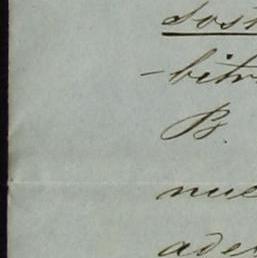 dost
-bitr
B.
nue
ade